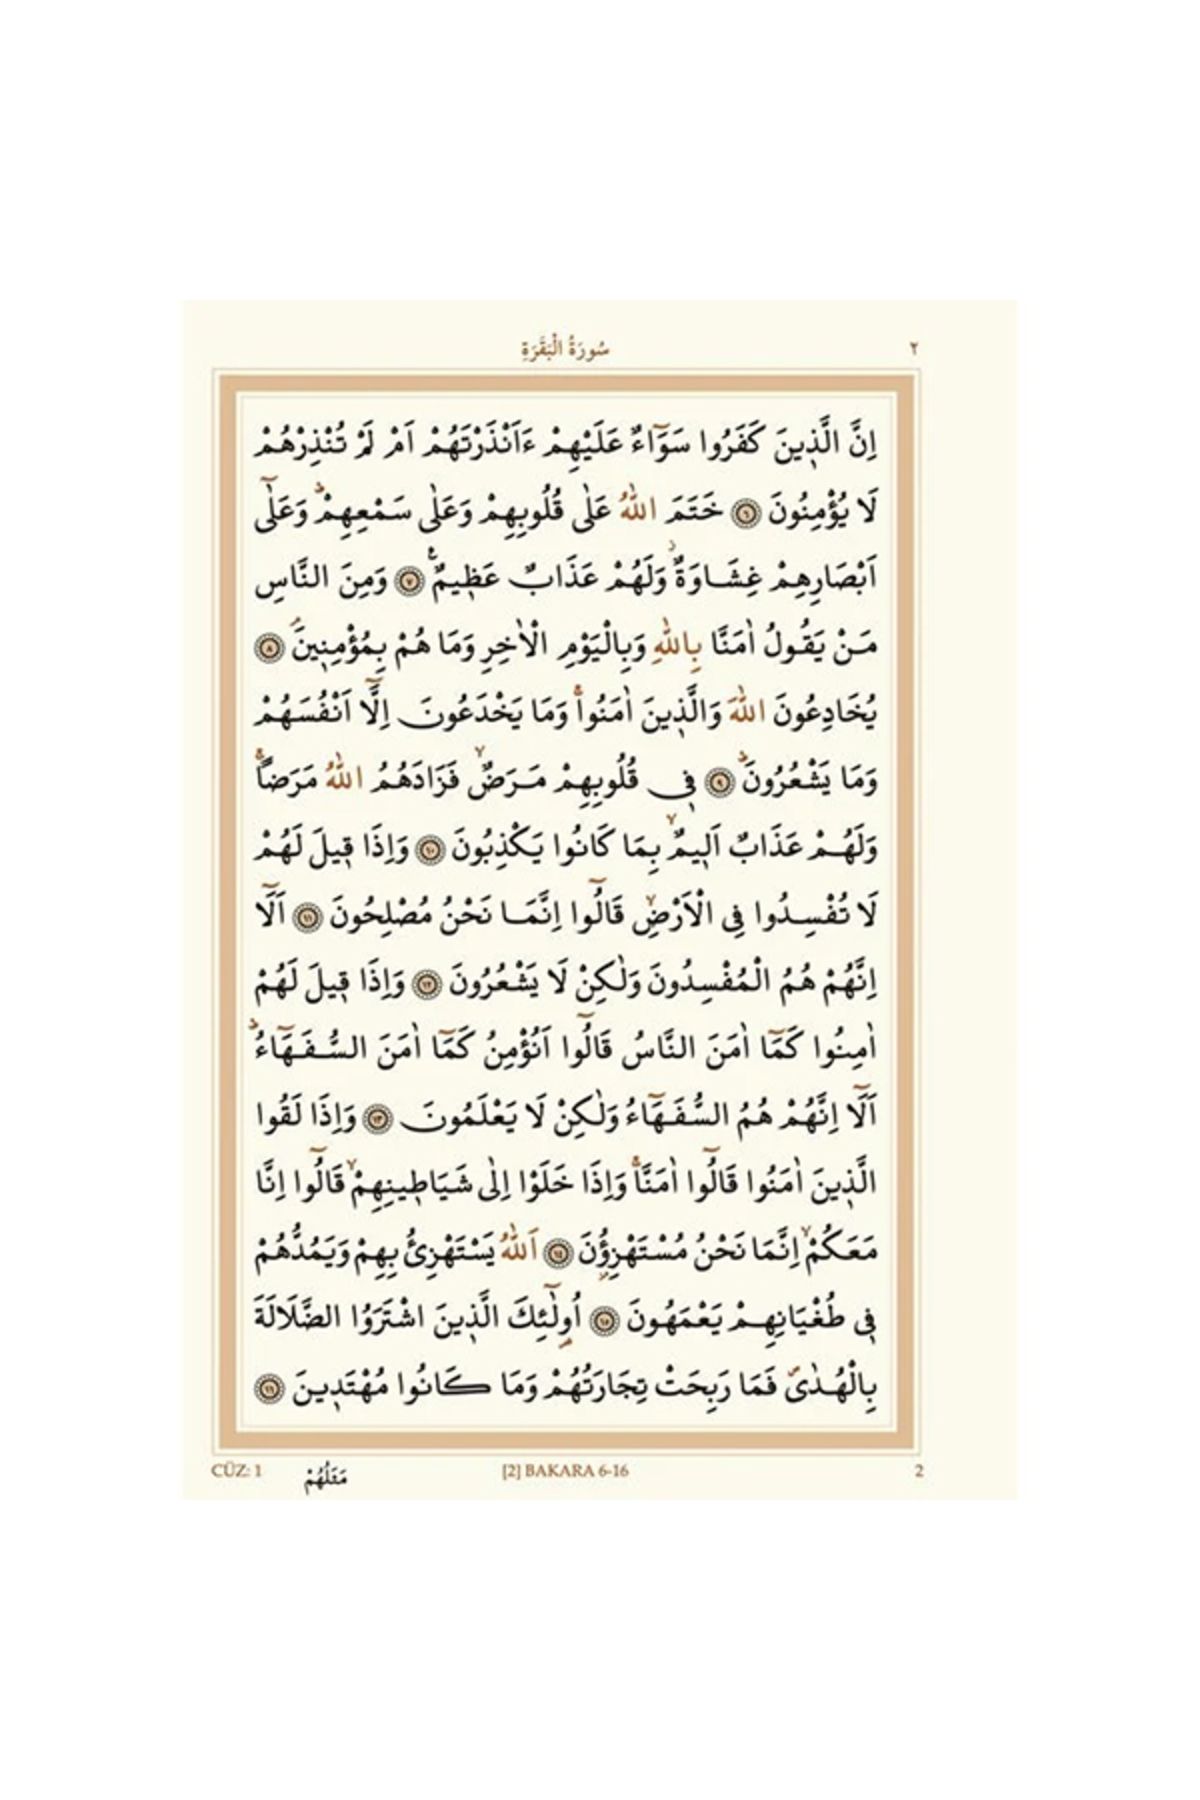 ٢
سُورَةُ الْبَقَرَةِ
اِنَّ الَّذٖينَ كَفَرُوا سَوَٓاءٌ عَلَيْهِمْ ءَاَنْذَرْتَهُمْ اَمْ لَمْ تُنْذِرْهُمْ
لَا يُؤْمِنُونَ ﴿٦﴾ خَتَمَ اللّٰهُ عَلٰى قُلُوبِهِمْ وَعَلٰى سَمْعِهِمْؕ وَعَلٰٓى
اَبْصَارِهِمْ غِشَاوَةٌؗ وَلَهُمْ عَذَابٌ عَظٖيمٌࣖ ﴿٧﴾ وَمِنَ النَّاسِ
مَنْ يَقُولُ اٰمَنَّا بِاللّٰهِ وَبِالْيَوْمِ الْاٰخِرِ وَمَا هُمْ بِمُؤْمِنٖينَۘ ﴿٨﴾
يُخَادِعُونَ اللّٰهَ وَالَّذٖينَ اٰمَنُواۚ وَمَا يَخْدَعُونَ اِلَّٓا اَنْفُسَهُمْ
وَمَا يَشْعُرُونَؕ ﴿٩﴾ فٖى قُلُوبِهِمْ مَرَضٌۙ فَزَادَهُمُ اللّٰهُ مَرَضاًۚ
وَلَهُمْ عَذَابٌ اَلٖيمٌۙ بِمَا كَانُوا يَكْذِبُونَ ﴿١٠﴾ وَاِذَا قٖيلَ لَهُمْ
لَا تُفْسِدُوا فِى الْاَرْضِۙ قَالُٓوا اِنَّمَا نَحْنُ مُصْلِحُونَ ﴿١١﴾ اَلَٓا
اِنَّهُمْ هُمُ الْمُفْسِدُونَ وَلٰكِنْ لَا يَشْعُرُونَ ﴿١٢﴾ وَاِذَا قٖيلَ لَهُمْ
اٰمِنُوا كَمَٓا اٰمَنَ النَّاسُ قَالُٓوا اَنُؤْمِنُ كَمَٓا اٰمَنَ السُّفَهَٓاءُؕ
اَلَٓا اِنَّهُمْ هُمُ السُّفَهَٓاءُ وَلٰكِنْ لَا يَعْلَمُونَ ﴿١٣﴾ وَاِذَا لَقُوا
الَّذٖينَ اٰمَنُوا قَالُٓوا اٰمَنَّاۚ وَاِذَا خَلَوْا اِلٰى شَيَاطٖينِهِمْۙ قَالُٓوا اِنَّا
مَعَكُمْۙ اِنَّمَا نَحْنُ مُسْتَهْزِؤُ۫نَ ﴿١٤﴾ اَللّٰهُ يَسْتَهْزِئُ بِهِمْ وَيَمُدُّهُمْ
فٖى طُغْيَانِهِمْ يَعْمَهُونَ ﴿١٥﴾ اُو۬لٰٓئِكَ الَّذٖينَ اشْتَرَوُا الضَّلَالَةَ
بِالْهُدٰىࣕ فَمَا رَبِحَتْ تِجَارَتُهُمْ وَمَا كَانُوا مُهْتَدٖينَ ﴿١٦﴾
مَثَلُهُمْ
CÜZ: 1
[2] BAKARA 6-16
2